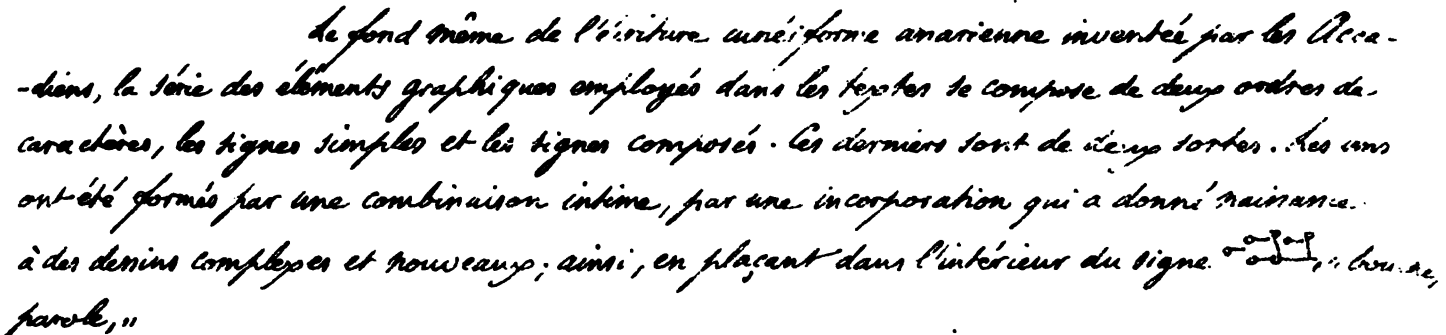 Le fond même de l'écriture cunéiforme anarienne inventée par les Acca-
-diens, la série des éléments graphiques employés dans les textes se compose de deux ordres de
caractères, les signes simples et les signes composés. Ces derniers sont de deux sortes. Les uns
ont été formés par une combinaison intime, par une incorporation qui a donné naissance
à des dessins complexes et nouveaux ; ainsi, en plaçant dans l'intérieur du signe , " bouche,
parole, "